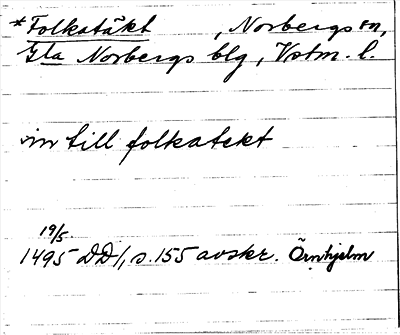 *Folkatäkt , Norbergs sn,
Gla Norbergs blg, Vstm. l.
vin till folkatekt
19/5.
1495 DD/, s. 155 avskr. Örnhjelm